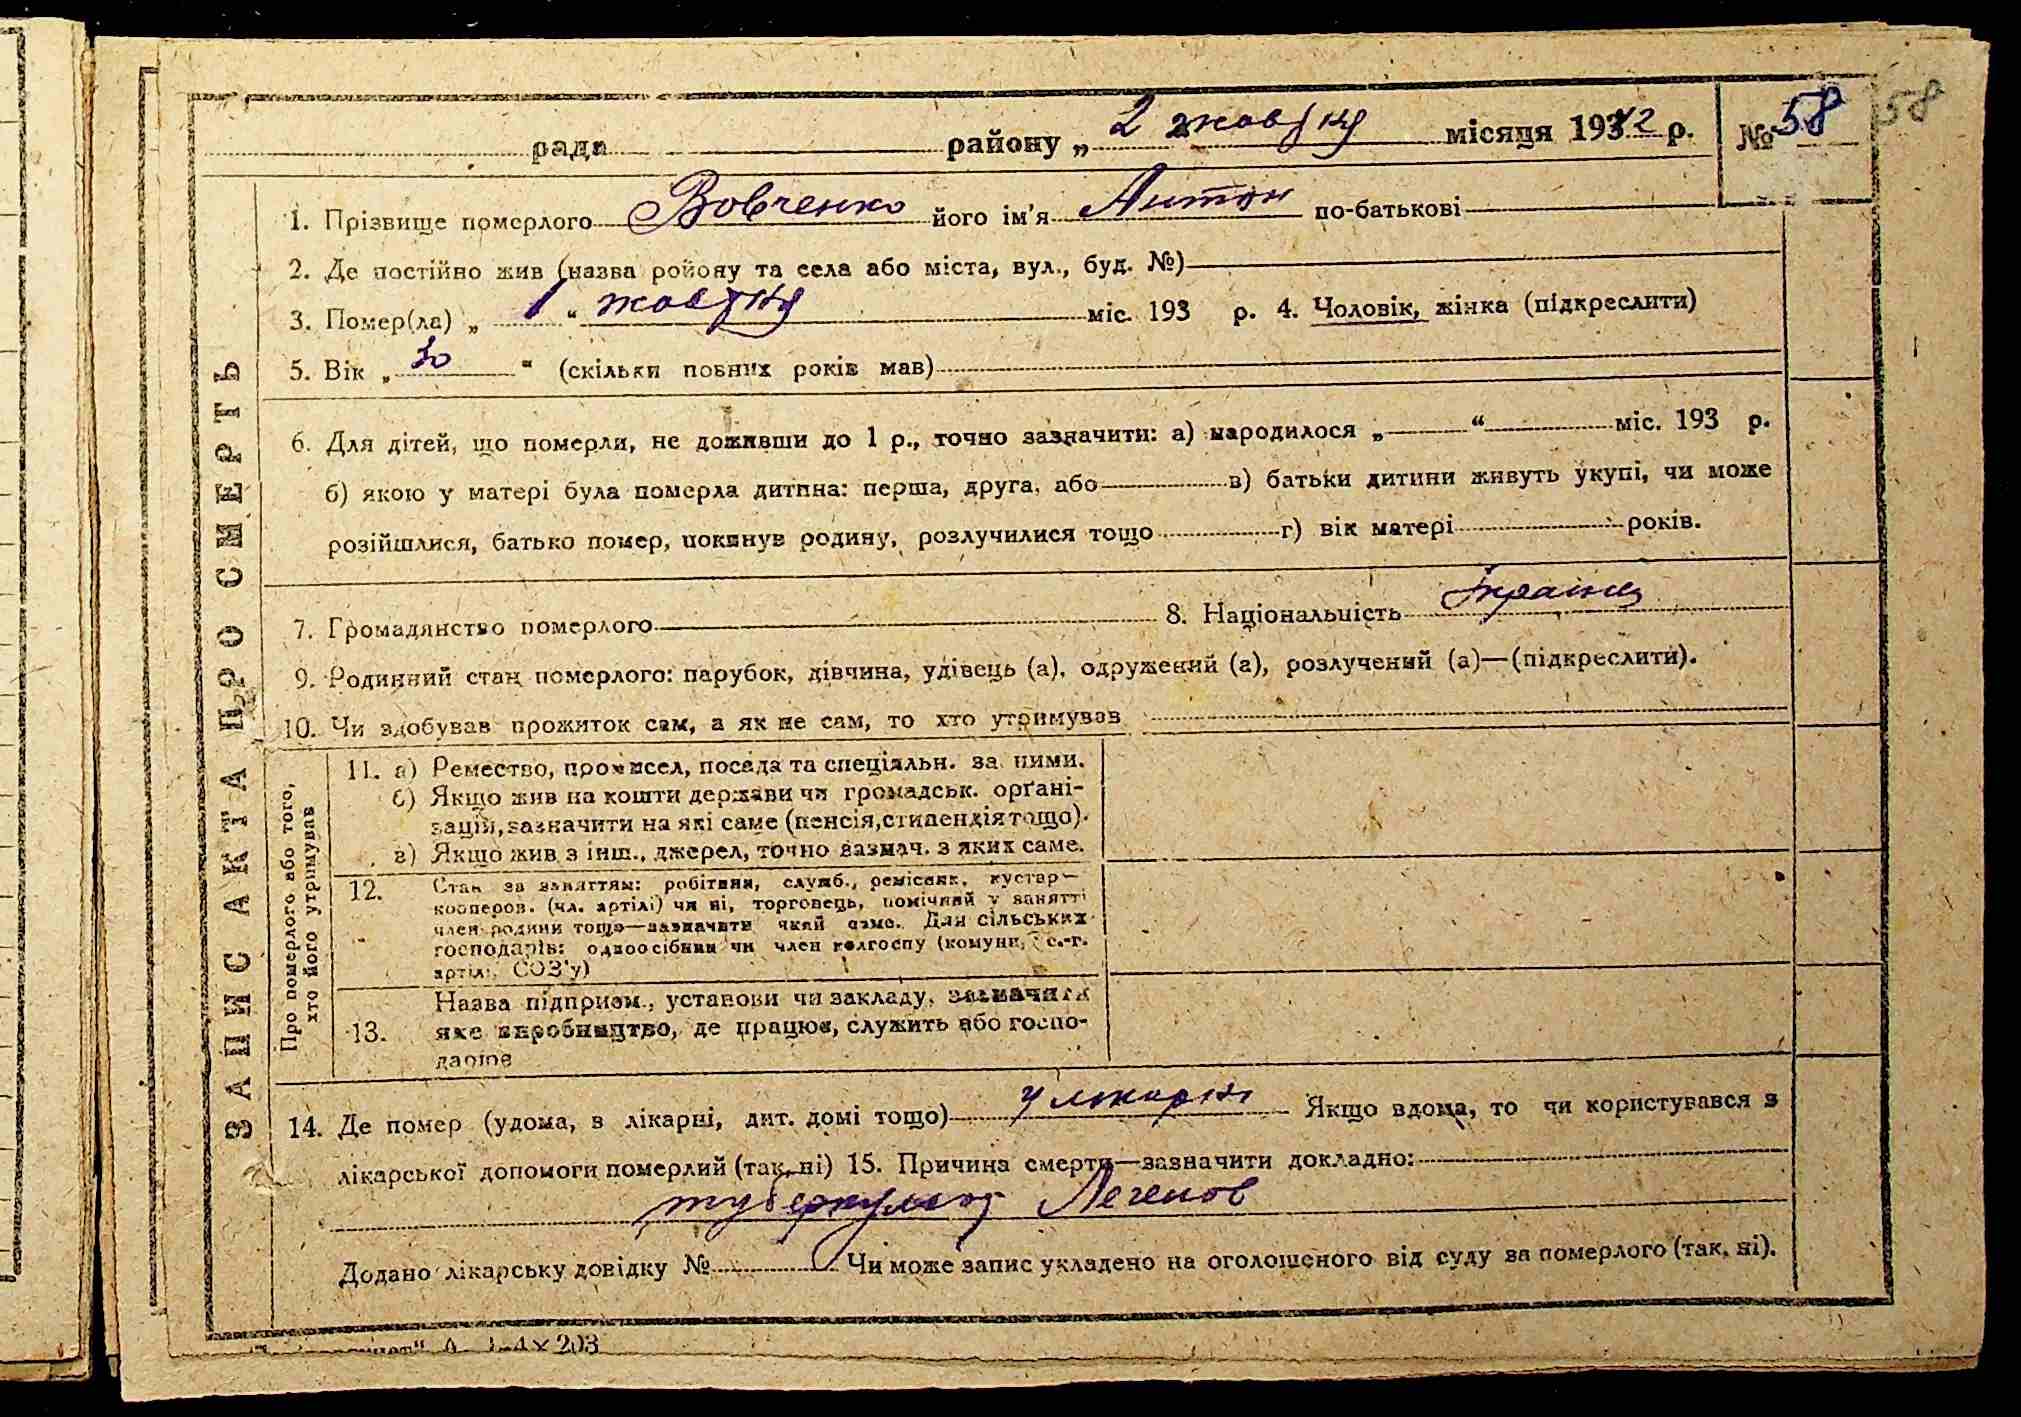 рада району „ 2 жовтня місяця 1942 р. № 58 58
ЗАПИС АКТА ПРО СМЕРТЬ
1. Прізвище померлого Вовченко його ім'я Антон по-батькові
2. Де постійно жив (назва ройону та села або міста, вул., буд. №)
3. Помер(ла) „ 1 “ жовтня міс. 193 р. 4. Чоловік, жінка (підкреслити)
5. Вік „ 30 “ (скільки повних років мав)
6. Для дітей, що померли, не доживши до 1 р., точно зазначити: а) народилося „ “ міс. 193 р.
б) якою у матері була померла дитина: перша, друга, або в) батьки дитини живуть укупі, чи може
розійшлися, батько помер, покинув родину, розлучилися тощо г) вік матері років.
7. Громадянство померлого 8. Національність Українец
9. Родинний стан померлого: парубок, дівчина, удівець (а), одружений (а), розлучений (а)—(підкреслити).
10. Чи здобував прожиток сам, а як не сам, то хто утримував
Про померлого або того,
хто його утримував
11. а) Ремество, промисел, посада та спеціяльн. за ними.
б) Якщо жив на кошти держави чи громадськ. орґані-
зацій, зазначити на які саме (пенсія, стипендія тощо).
в) Якщо жив з інш., джерел, точно зазнач. з яких саме.
12. Стан за заняттям: робітник, служб., ремісник, кустар—
кооперов. (чл. артілі) чи ні, торговець, помічний у занятті
член родини тощо—зазначити який саме. Для сільських
господарів: одноосібник чи член колгоспу (комуни, с.-г.
артілі, СОЗ'у)
13. Назва підприєм., установи чи закладу, зазначити
яке виробництво, де працює, служить або госпо-
дарює
14. Де помер (удома, в лікарні, дит. домі тощо) у лікарні Якщо вдома, то чи користувався з
лікарської допомоги померлий (так, ні) 15. Причина смерти—зазначити докладно:
туберкульоз Легенов
Додано лікарську довідку № Чи може запис укладено на оголошеного від суду за померлого (так, ні).
4×203